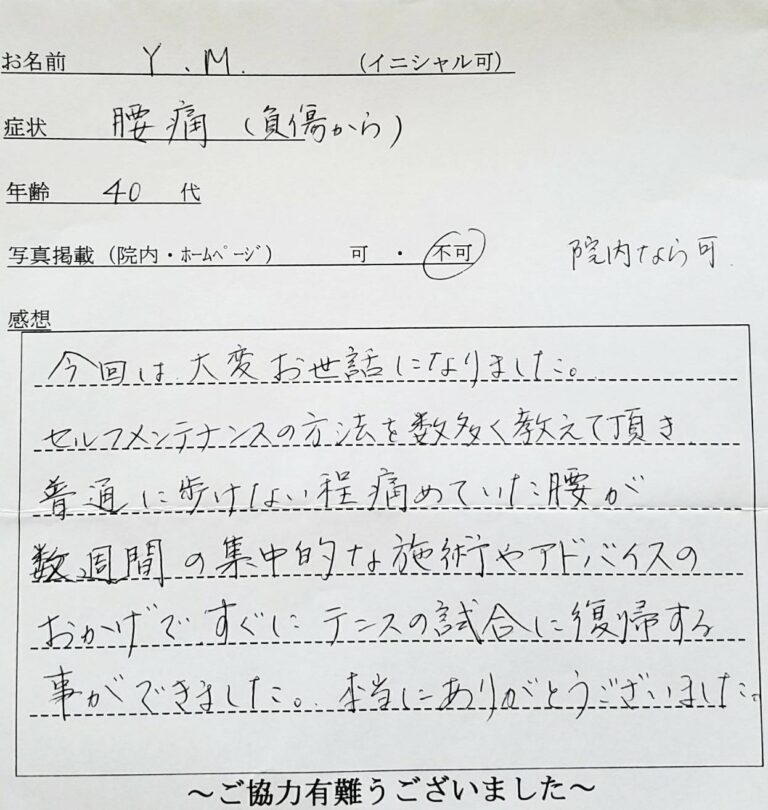 お名前 Y.M. (イニシャル可)
症状 腰痛(負傷から)
年齢 40 代
写真掲載(院内・ホームページ) 可 ・ 不可 院内なら可
感想
今回は大変お世話になりました。
セルフメンテナンスの方法を数多く教えて頂き
普通に歩けない程痛めていた腰が
数週間の集中的な施術やアドバイスの
おかげですぐにテニスの試合に復帰する
事ができました。本当にありがとうございました。
～ご協力有難うございました～